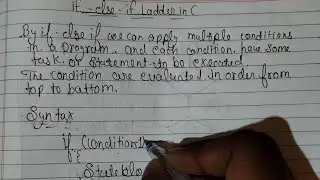 if - else - if Ladder in C
By if-else if we can apply multiple conditions
in a program. and each condition have some
task or statement to be executed
The condition are evaluated in order from
top to bottom.
Syntax
if (condition 1)
{
Stateblo